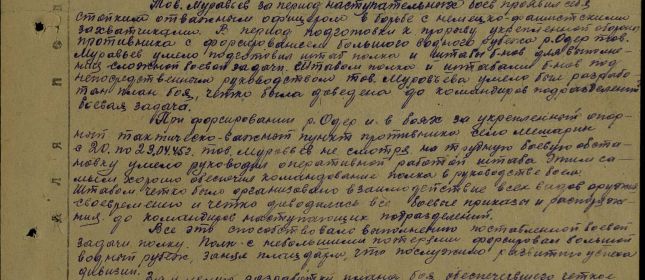 Тов. Муравьев за период наступательных боев проявил себя
стойким отважным офицером в борьбе с немецко-фашистскими
захватчиками. В период подготовки к прорыву укрепленной обороны
противника с форсированием большого водного рубежа р. Одер тов.
Муравьев умело подготовил штаб полка и штабы б-нов для выполне-
ния сложной боевой задачи. Штабом полка и штабами б-нов под
непосредственным руководством тов. Муравьева умело был разрабо-
тан план боя, четко была доведена до командиров подразделений
боевая задача.
При форсировании р. Одер и в боях за укрепленный опор-
ный тактическо-важный пункт противника село
с 20. по 23.04.45г. тов. Муравьев не смотря на трудную боевую обста-
новку умело руководил оперативной работой штаба этим са-
мым хорошо обеспечил командование полка в руководстве боем.
Штабом четко было организовано взаимодействие всех видов оружия
своевременно и четко доводились все боевые приказы и распоряже-
ния до командиров наступающих подразделений.
Все это способствовало выполнению поставленной боевой
задачи полку. Полк с небольшими потерями форсировал большой
водный рубеж, занял плацдарм, что послужило развитию успеха
дивизии.
За умелую разработку плана боя обеспечившего четкое